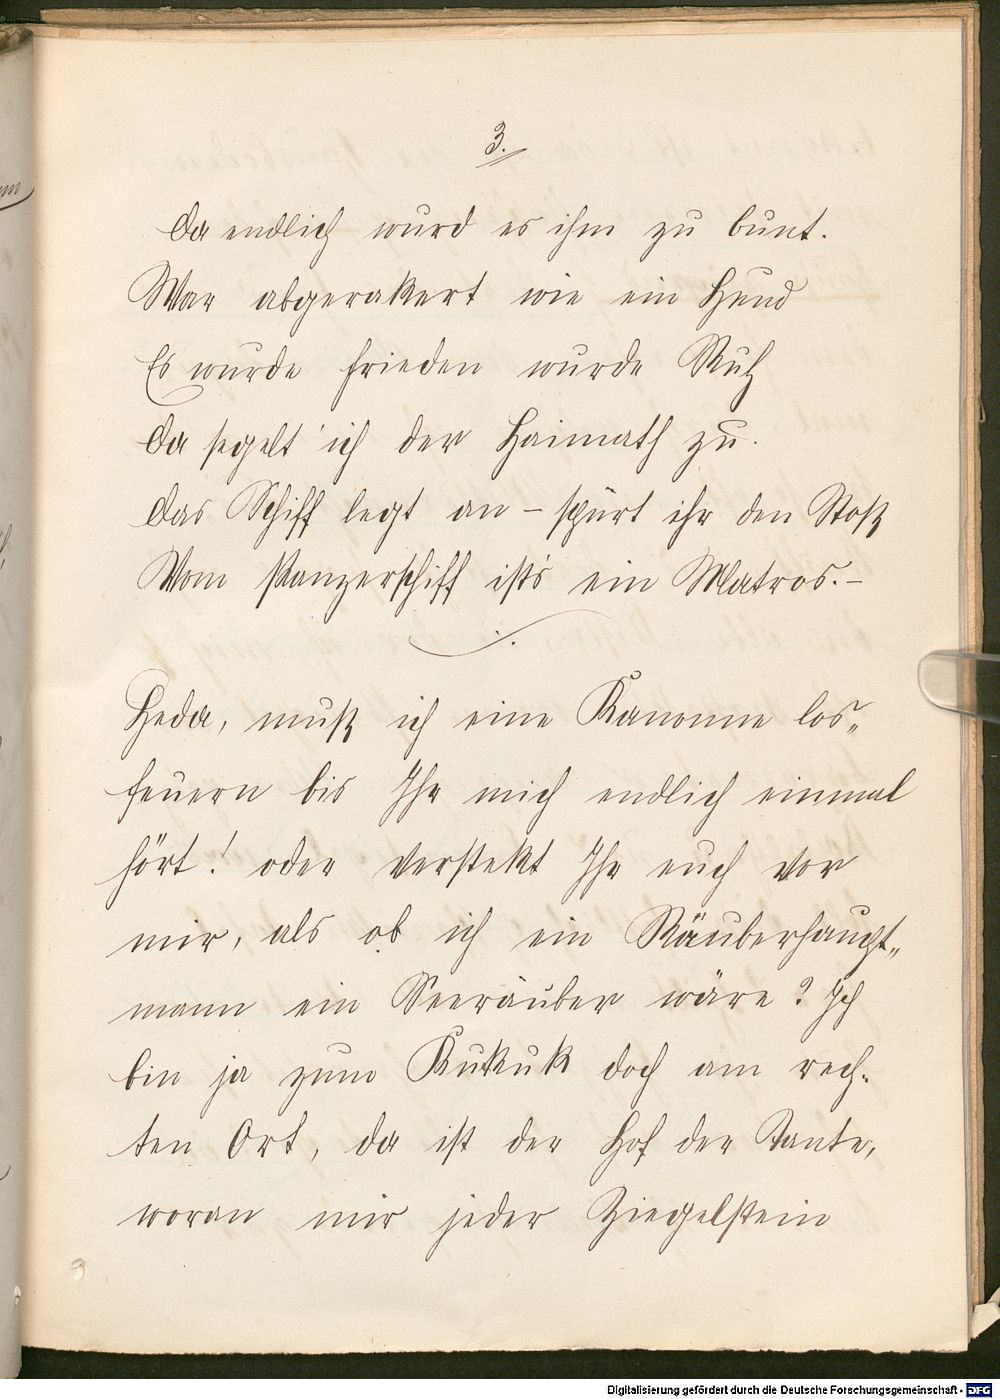 3.
Da endlich wurd es ihm zu bunt.
War abgerakert wie ein Hund
Es wurde Frieden wurde Ruh
Da segelt' ich der Haimath zu.
Das Schiff legt an – spürt ihr den Stoß
Vom Panzerschiff ist's ein Matros. –
Heda, muß ich eine Kanonne los„
feuern bis Ihr mich endlich einmal
hört! oder verstekt Ihr euch vor
mir, als ob ich ein Räuberhaupt„
mann ein Seeräuber wäre? Ich
bin ja zum Kukuk doch am rech„
ten Ort, da ist der Hof der Tante,
woran mir jeder Ziegelstein
Digitalisierung gefördert durch die Deutsche Forschungsgemeinschaft - DFG